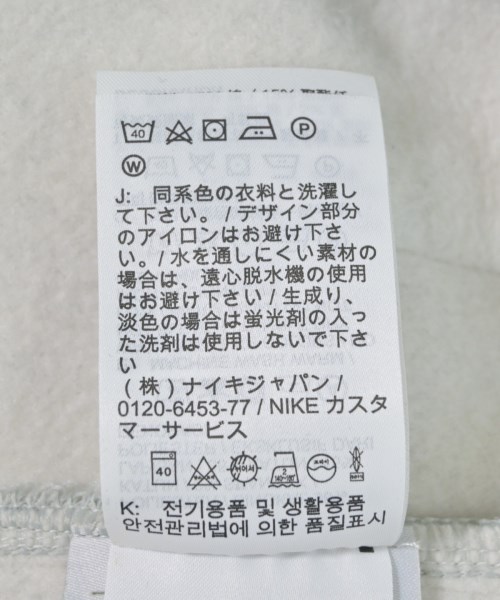 40 P
W
J: 同系色の衣料と洗濯し
て下さい。/ デザイン部分
のアイロンはお避け下さ
い。/ 水を通しにくい素材の
場合は、遠心脱水機の使用
はお避け下さい / 生成り、
淡色の場合は蛍光剤の入っ
た洗剤は使用しないで下さ
い
(株) ナイキジャパン /
0120-6453-77 / NIKE カスタ
マーサービス
40
K: 전기용품 및 생활용품
안전관리법에 의한 품질표시